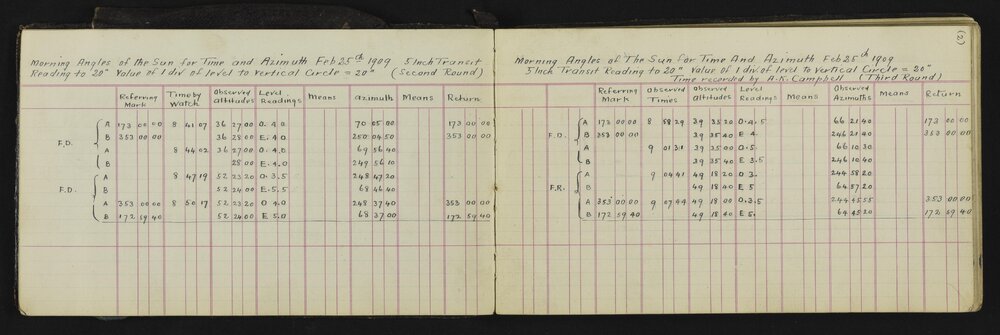 Morning Angles of the Sun for Time and Azimuth Feb 25th 1909 5 Inch Transit
Reading to 20" Value of 1 div of level to Vertical Circle = 20" (Second Round)
Referring Mark Time by Watch Observed altitudes Level Readings Means azimuth Means Return
F.D. A 173 00 00 8 41 07 36 27 00 O. 4.0 70 05 00 173 00 00
B 353 00 00 36 28 00 E. 4.0 250 04 50 353 00 00
A 8 44 02 36 27 00 O. 4.0 69 56 40
B 28 00 E. 4.0 249 56 10
F.D. A 8 47 19 52 23 20 O. 3.5 248 47 20
B 52 24 00 E. 5.5 68 46 40
A 353 00 00 8 50 17 52 23 20 O 4.0 248 37 40 353 00 00
B 172 59 40 52 24 00 E 5.0 68 37 00 172 59 40
(2)
Morning Angles of The Sun for Time And Azimuth Feb 25th 1909
5 Inch Transit Reading to 20" Value of 1 div of level to Vertical Circle = 20"
Time recorded by A.K. Campbell (Third Round)
Referring Mark Observed Times Observed altitudes Level Readings Means Observed Azimuths Means Return
F.D. A 173 00 00 8 58 29 39 35 20 O. 4.5 66 21 40 173 00 00
B 353 00 00 39 35 40 E 4. 246 21 40 353 00 00
A 9 01 31 39 35 00 O. 5. 66 10 30
B 39 35 40 E 3.5 246 10 40
F.R. A 9 04 41 49 18 20 O 3. 244 58 20
B 49 18 40 E 5 64 57 20
A 353 00 00 9 07 44 49 18 00 O. 3.5 244 45 55 353 00 00
B 172 59 40 49 18 40 E 5. 64 45 20 172 59 40